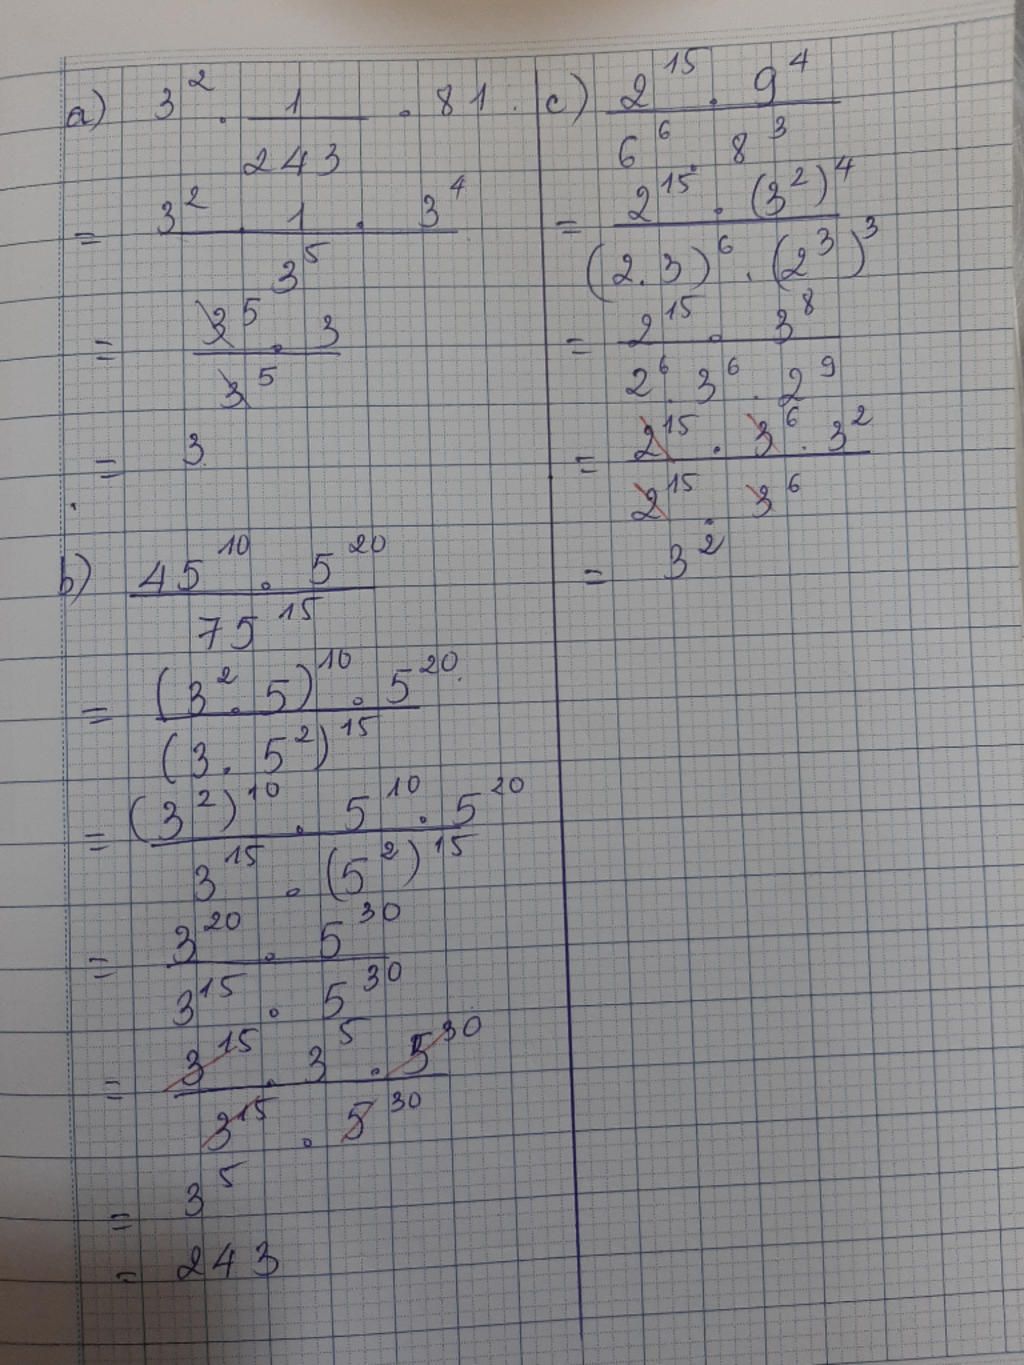 a) 3² . 1/243 . 81
= (3² . 1 . 3⁴)/3⁵
= (3⁵ . 3)/3⁵
= 3
b) (45¹⁰ . 5²⁰)/75¹⁵
= ((3² . 5)¹⁰ . 5²⁰)/(3 . 5²)¹⁵
= ((3²)¹⁰ . 5¹⁰ . 5²⁰)/(3¹⁵ . (5²)¹⁵)
= (3²⁰ . 5³⁰)/(3¹⁵ . 5³⁰)
= (3¹⁵ . 3⁵ . 5³⁰)/(3¹⁵ . 5³⁰)
= 3⁵
= 243
c) (2¹⁵ . 9⁴)/(6⁶ . 8³)
= (2¹⁵ . (3²)⁴)/((2.3)⁶ . (2³)³)
= (2¹⁵ . 3⁸)/(2⁶ . 3⁶ . 2⁹)
= (2¹⁵ . 3⁶ . 3²)/(2¹⁵ . 3⁶)
= 3²